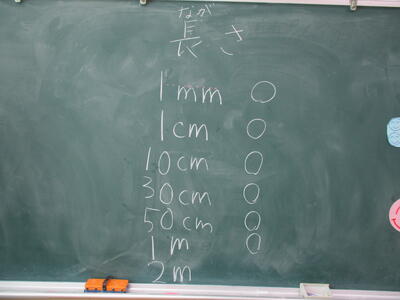 なが
長さ
1mm ○
1cm ○
10cm ○
30cm ○
50cm ○
1m ○
2m